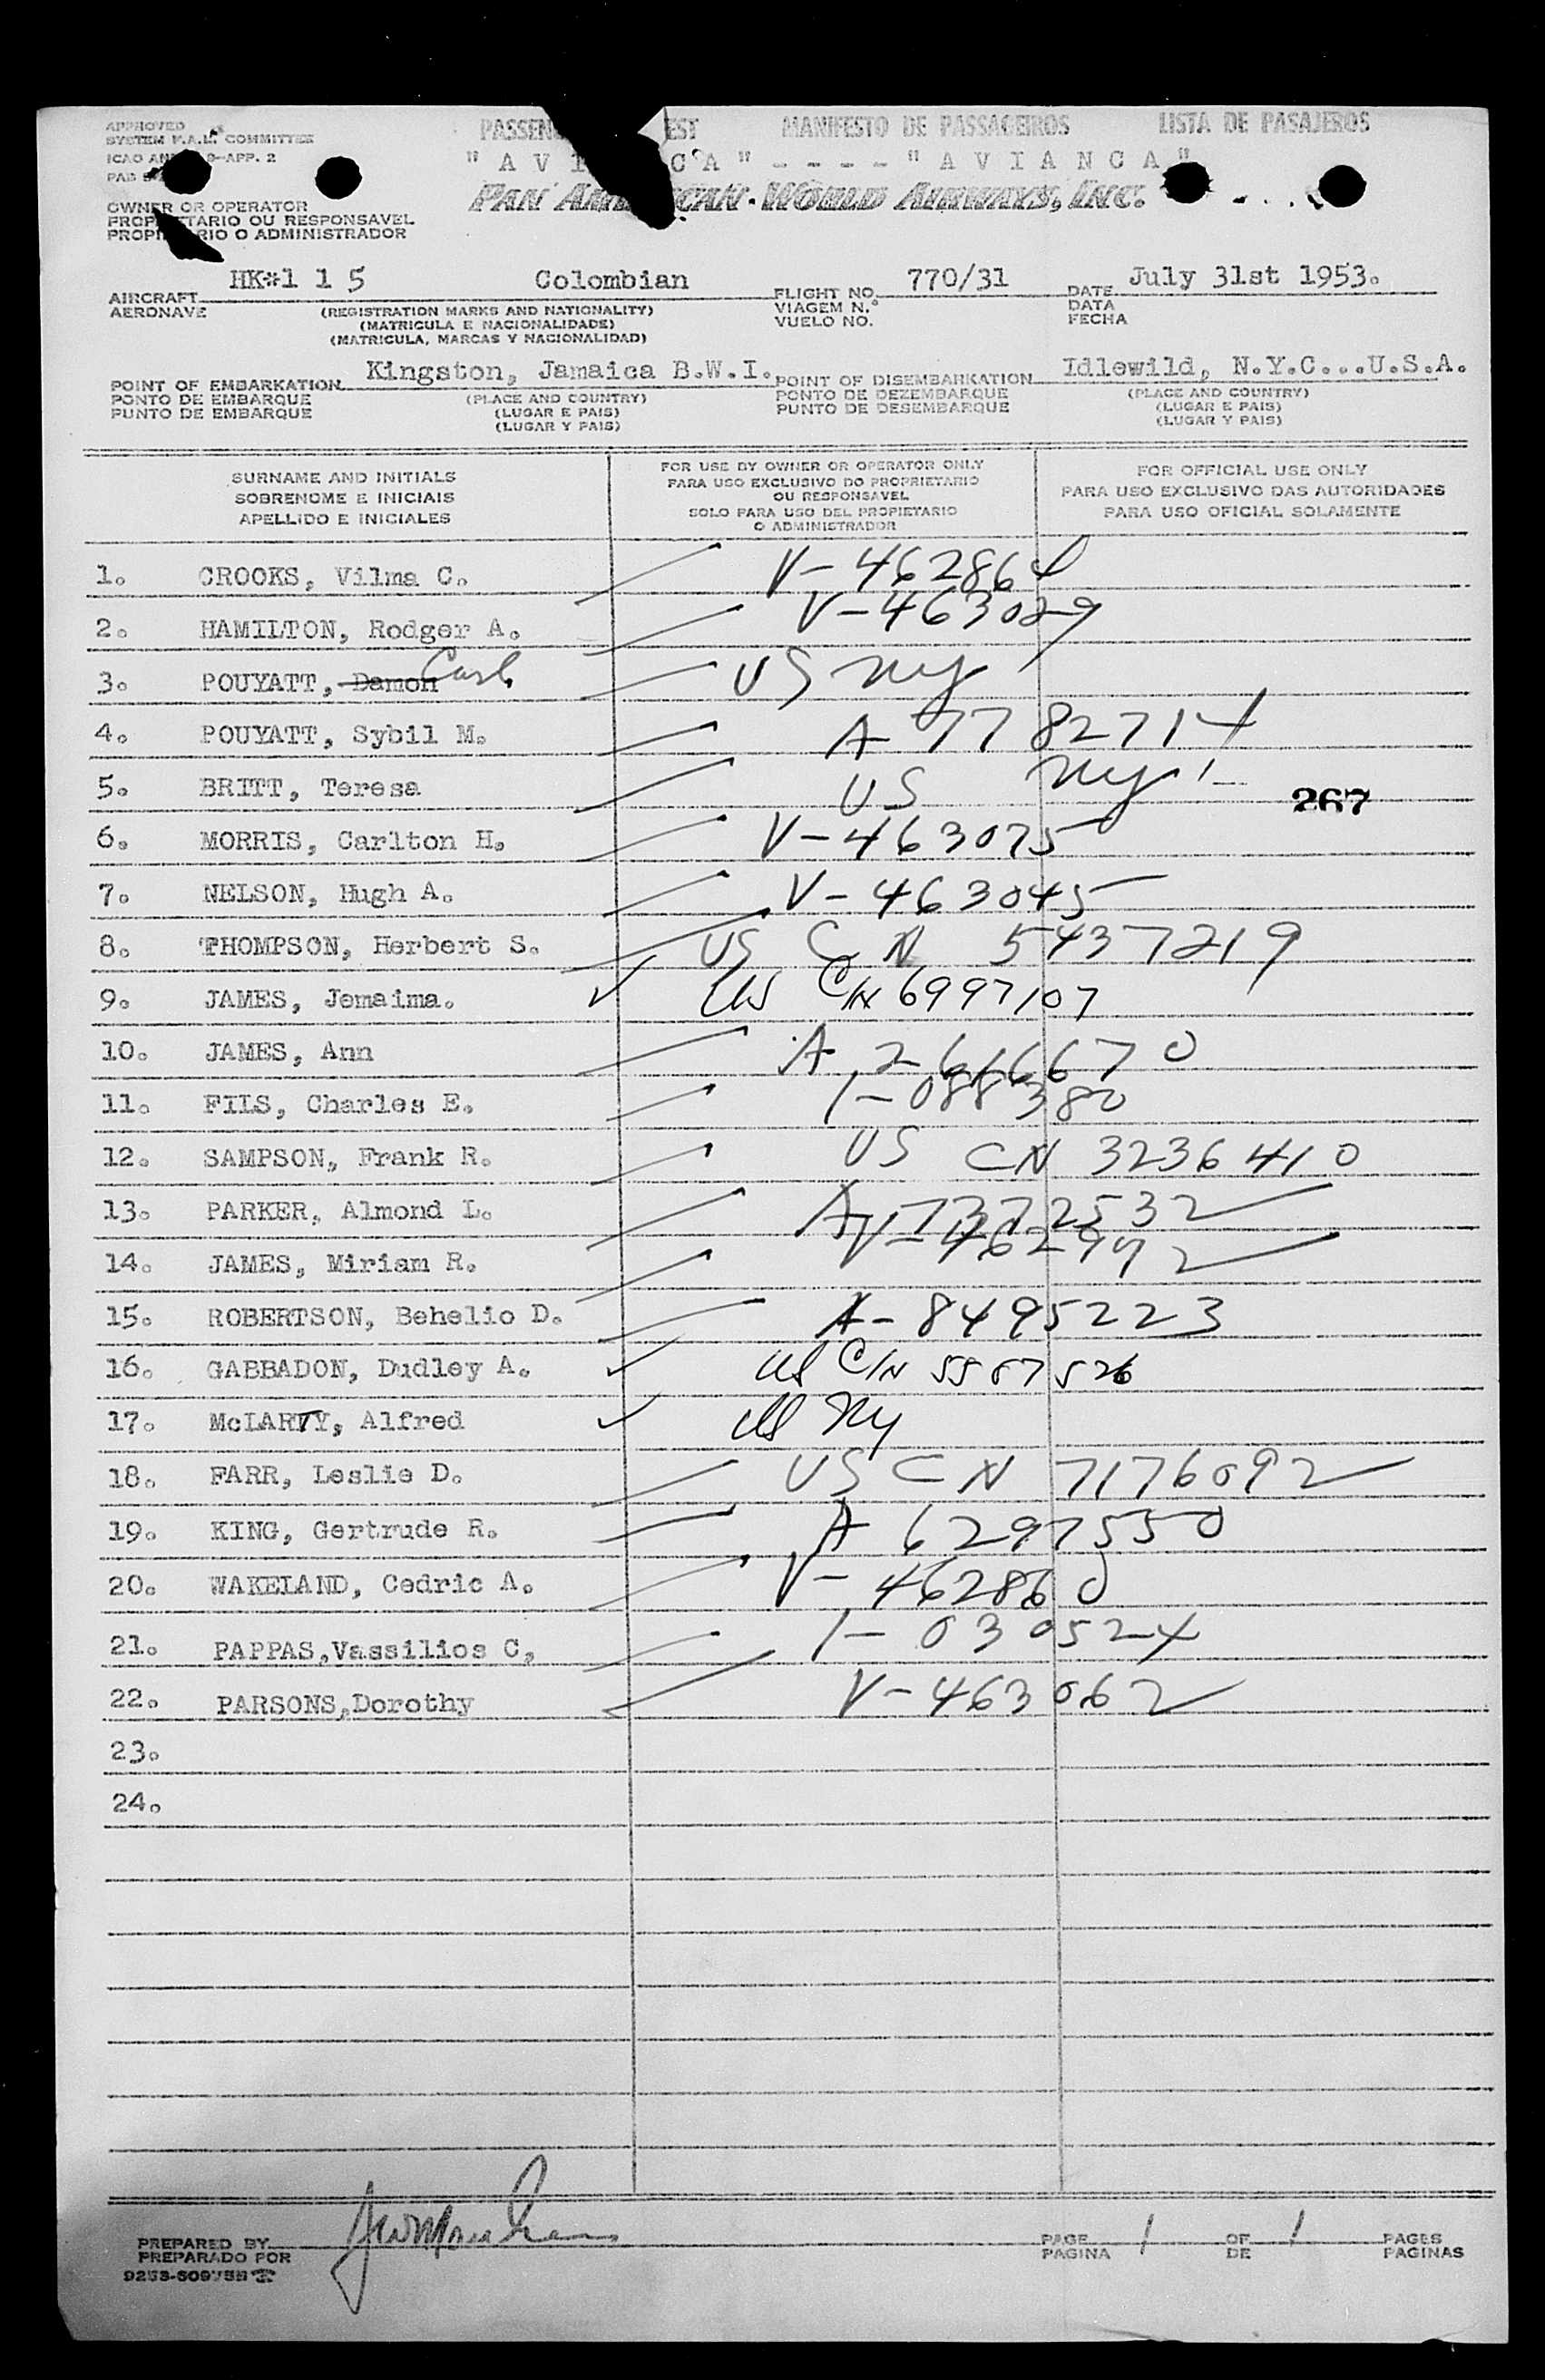 APPROVED
SYSTEM F.A.L. COMMITTEE
ICAO 9-APP. 2
PASSEN EST MANIFESTO DE PASSAGEIROS LISTA DE PASAJEROS
"A V I C A" - - - - "A V I A N C A"
PAN AMERICAN WORLD AIRWAYS, INC.
OWNER OR OPERATOR
PROPRIETARIO OU RESPONSAVEL
PROPIETARIO O ADMINISTRADOR
AIRCRAFT HK#1 1 5 Colombian FLIGHT NO. 770/31 DATE July 31st 1953.
AERONAVE (REGISTRATION MARKS AND NATIONALITY) VIAGEM N.° DATA
(MATRICULA E NACIONALIDADE) VUELO NO. FECHA
(MATRICULA, MARCAS Y NACIONALIDAD)
POINT OF EMBARKATION Kingston, Jamaica B.W.I. POINT OF DISEMBARKATION Idlewild, N.Y.C...U.S.A.
PONTO DE EMBARQUE (PLACE AND COUNTRY) PONTO DE DEZEMBARQUE (PLACE AND COUNTRY)
PUNTO DE EMBARQUE (LUGAR E PAIS) PUNTO DE DESEMBARQUE (LUGAR E PAIS)
(LUGAR Y PAIS) (LUGAR Y PAIS)
SURNAME AND INITIALS
SOBRENOME E INICIAIS
APELLIDO E INICIALES
FOR USE BY OWNER OR OPERATOR ONLY
PARA USO EXCLUSIVO DO PROPRIETARIO
OU RESPONSAVEL
SOLO PARA USO DEL PROPIETARIO
O ADMINISTRADOR
FOR OFFICIAL USE ONLY
PARA USO EXCLUSIVO DAS AUTORIDADES
PARA USO OFICIAL SOLAMENTE
1. CROOKS, Vilma C. V-462864
2. HAMILTON, Rodger A. V-463029
3. POUYATT, Damon Carl US NY
4. POUYATT, Sybil M. A 7782714
5. BRITT, Teresa US NY
267
6. MORRIS, Carlton H. V-463075
7. NELSON, Hugh A. V-463045
8. THOMPSON, Herbert S. US C N 5437219
9. JAMES, Jemaima. US C/N 6997107
10. JAMES, Ann A 2616670
11. FILS, Charles E. 1-088380
12. SAMPSON, Frank R. US CN 3236410
13. PARKER, Almond L. A 7372532
14. JAMES, Miriam R. V-462992
15. ROBERTSON, Behelio D. A-8495223
16. GABBADON, Dudley A. US C/N 5587526
17. McLARTY, Alfred US NY
18. FARR, Leslie D. US C N 7176092
19. KING, Gertrude R. A 6297550
20. WAKELAND, Cedric A. V-462860
21. PAPPAS,Vassilios C, 1-030524
22. PARSONS,Dorothy V-463062
23.
24.
PREPARED BY PAGE 1 OF 1 PAGES
PREPARADO POR PAGINA DE PAGINAS